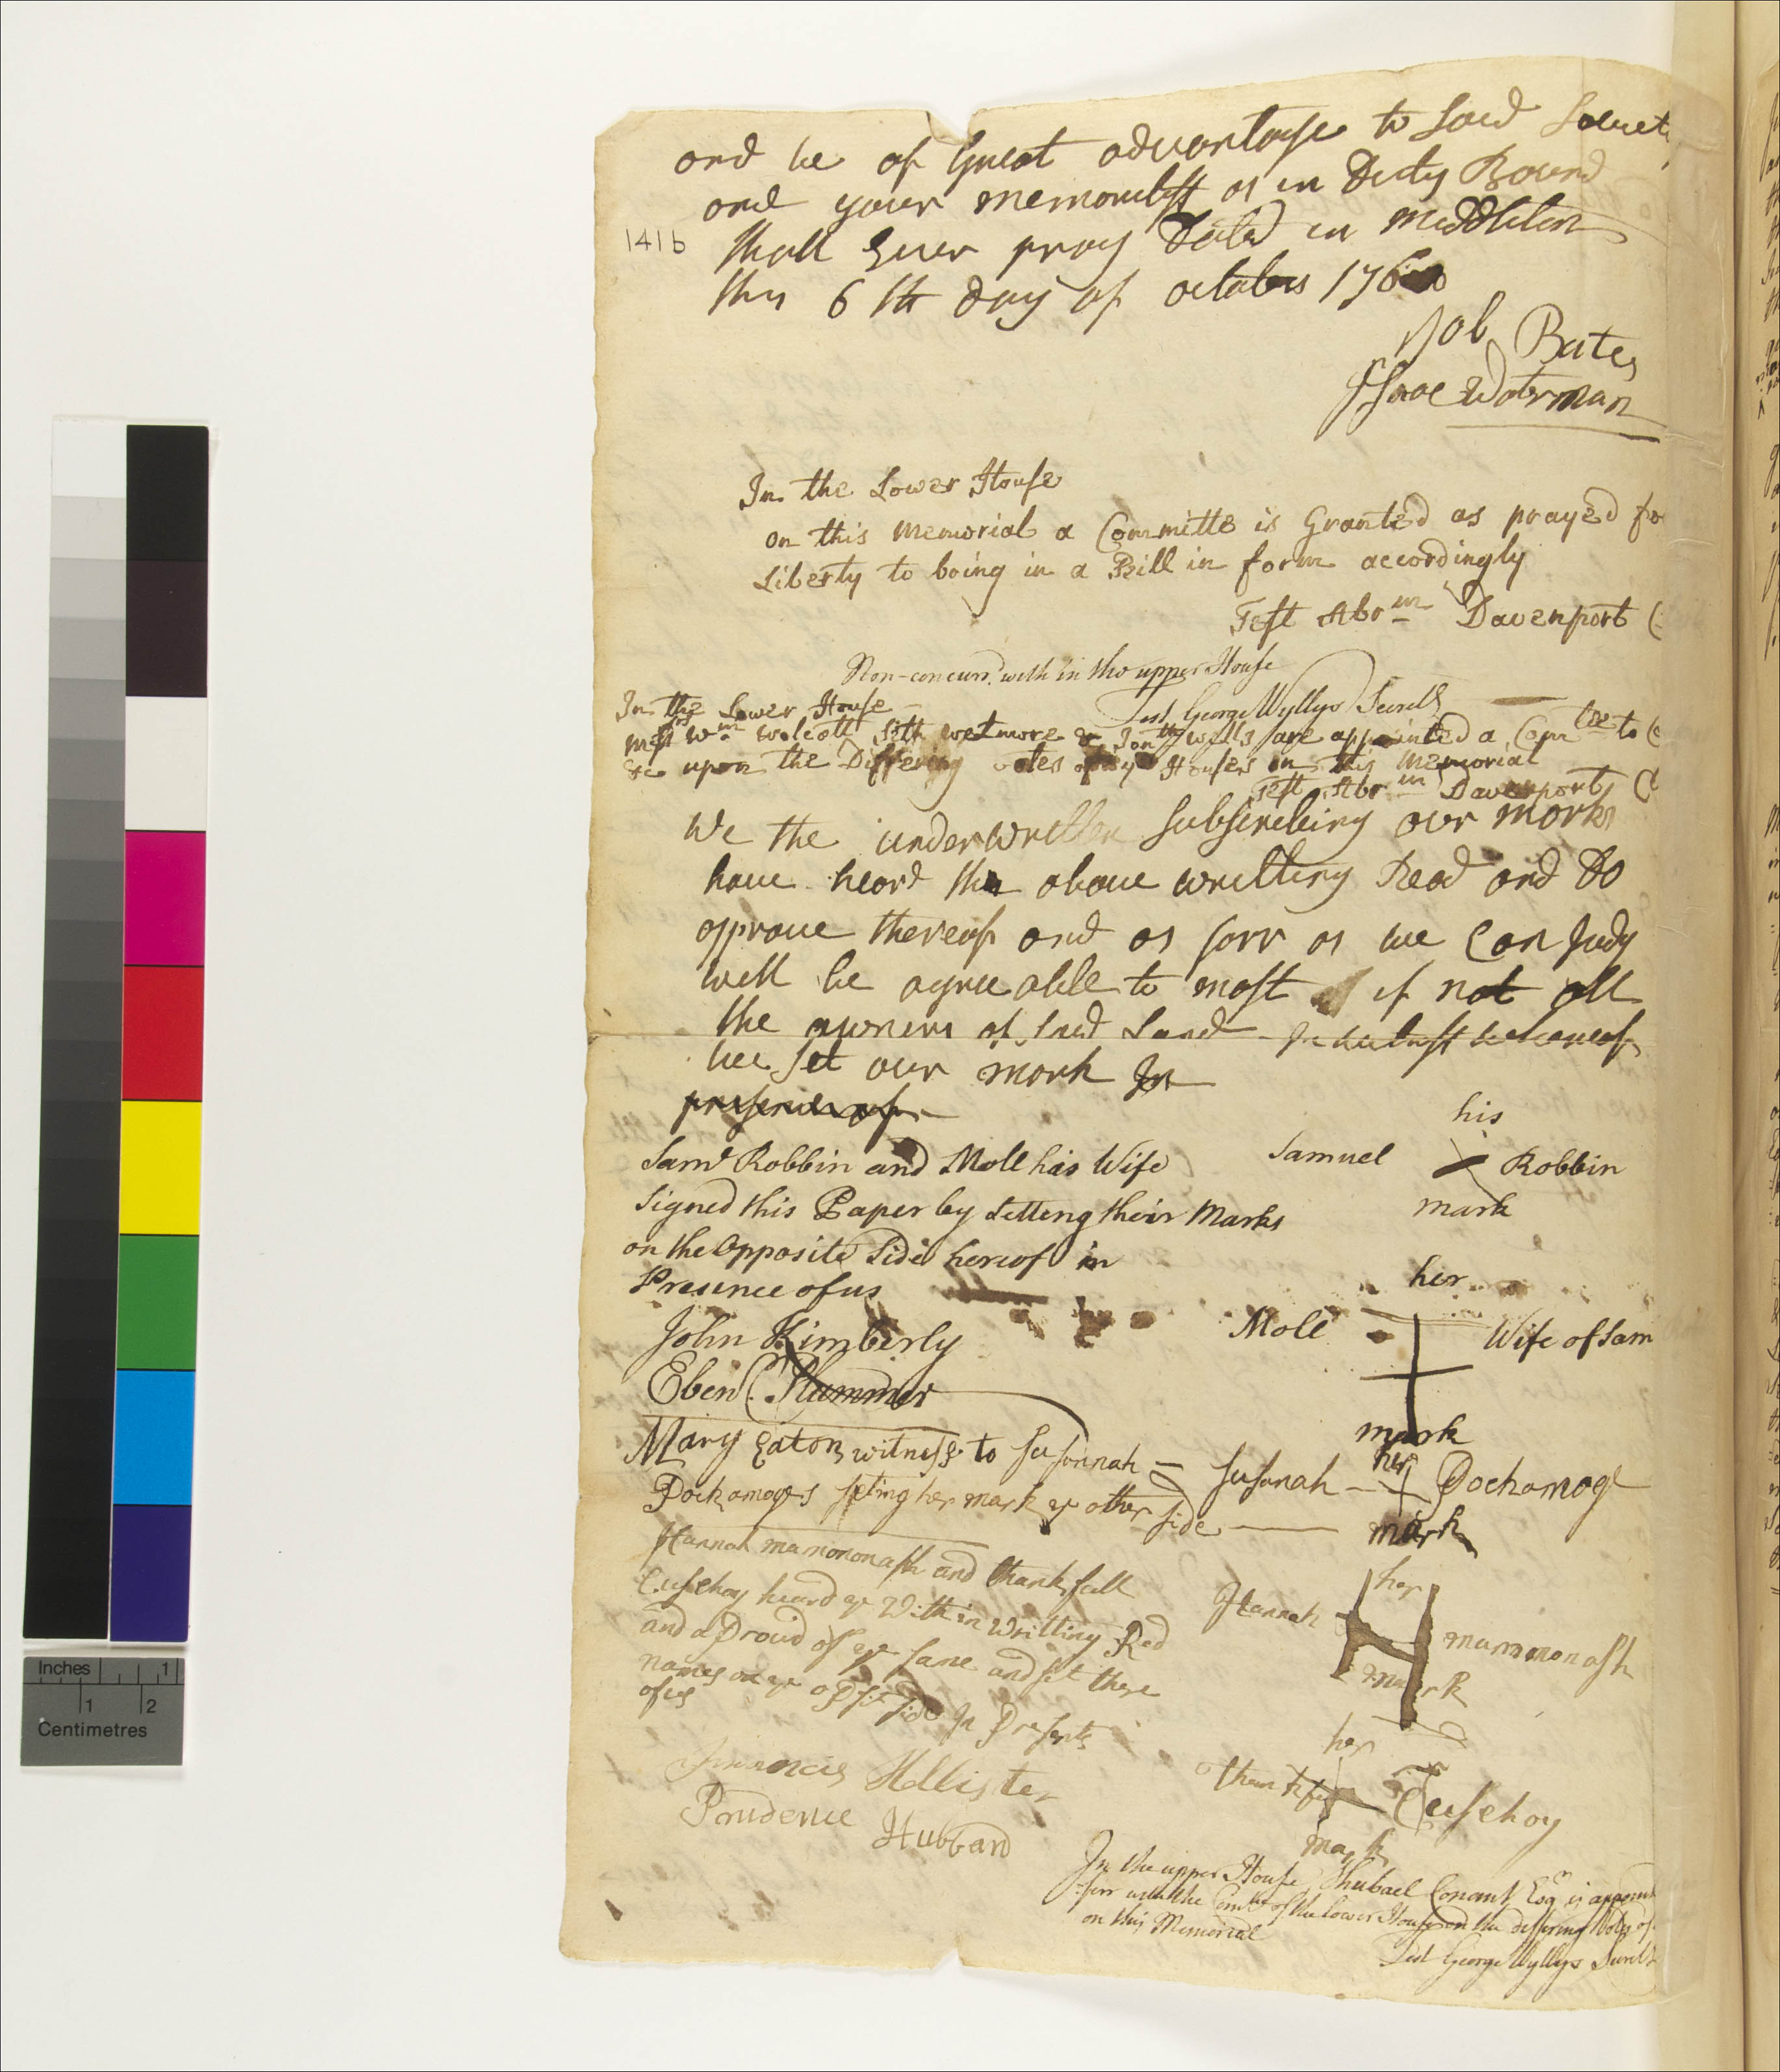 and be of Great advantage to said Societ
and your memorialist as in Duty Bound
141b
shall Ever pray Dated in Middleton
this 6 th day of october 176
Job Bates
Isaac Waterman
In the Lower House
on this Memorial a Committe is Granted as prayed fo
Liberty to bring in a Bill in form accordingly
Test Abrm Davenport C
Non-concurrd with in the upper House
Test George Wyllys Secrety
In the Lower House
Messrs Wm Wolcott Seth Wetmore & Jonth Wells are appointed a Comtee to C
&c upon the Differing votes of ye Houses on this Memorial
Test Abrm Davenport C
We the underwritten subscribing our marks
have heard the above writting Read and Do
approve thereof and as farr as we Can Judg
will be agreeable to most if not all
the owners of said Land In witness whereof
we set our mark In
presence of
Saml Robbin and Moll his Wife
signed this Paper by setting their Marks
on the Opposite side hereof in
Presence of us
John Kimberly
Eben Plummer
Mary Eaton witness to Susannah
Pockamoges seting her mark ye other side
Hannah mamononash and thankfull
Cuschoy heard ye Within Writting Red
and aProvid of ye same and set there
names on ye opsit side In Presents
of us
Francis Hollister
Prudence Hubbard
his
Samuel Robbin
mark
her
Moll Wife of Sam
mark
her
Susanah Pochamoge
mark
her
Hannah mammonash
mark
her
thankful Cuschoy
mark
In the upper House, Shubael Conant Esqr is appoint
-ferr with the Comtee of the Lower House on the differing Votes of
on this Memorial
Test George Wyllys Secrety